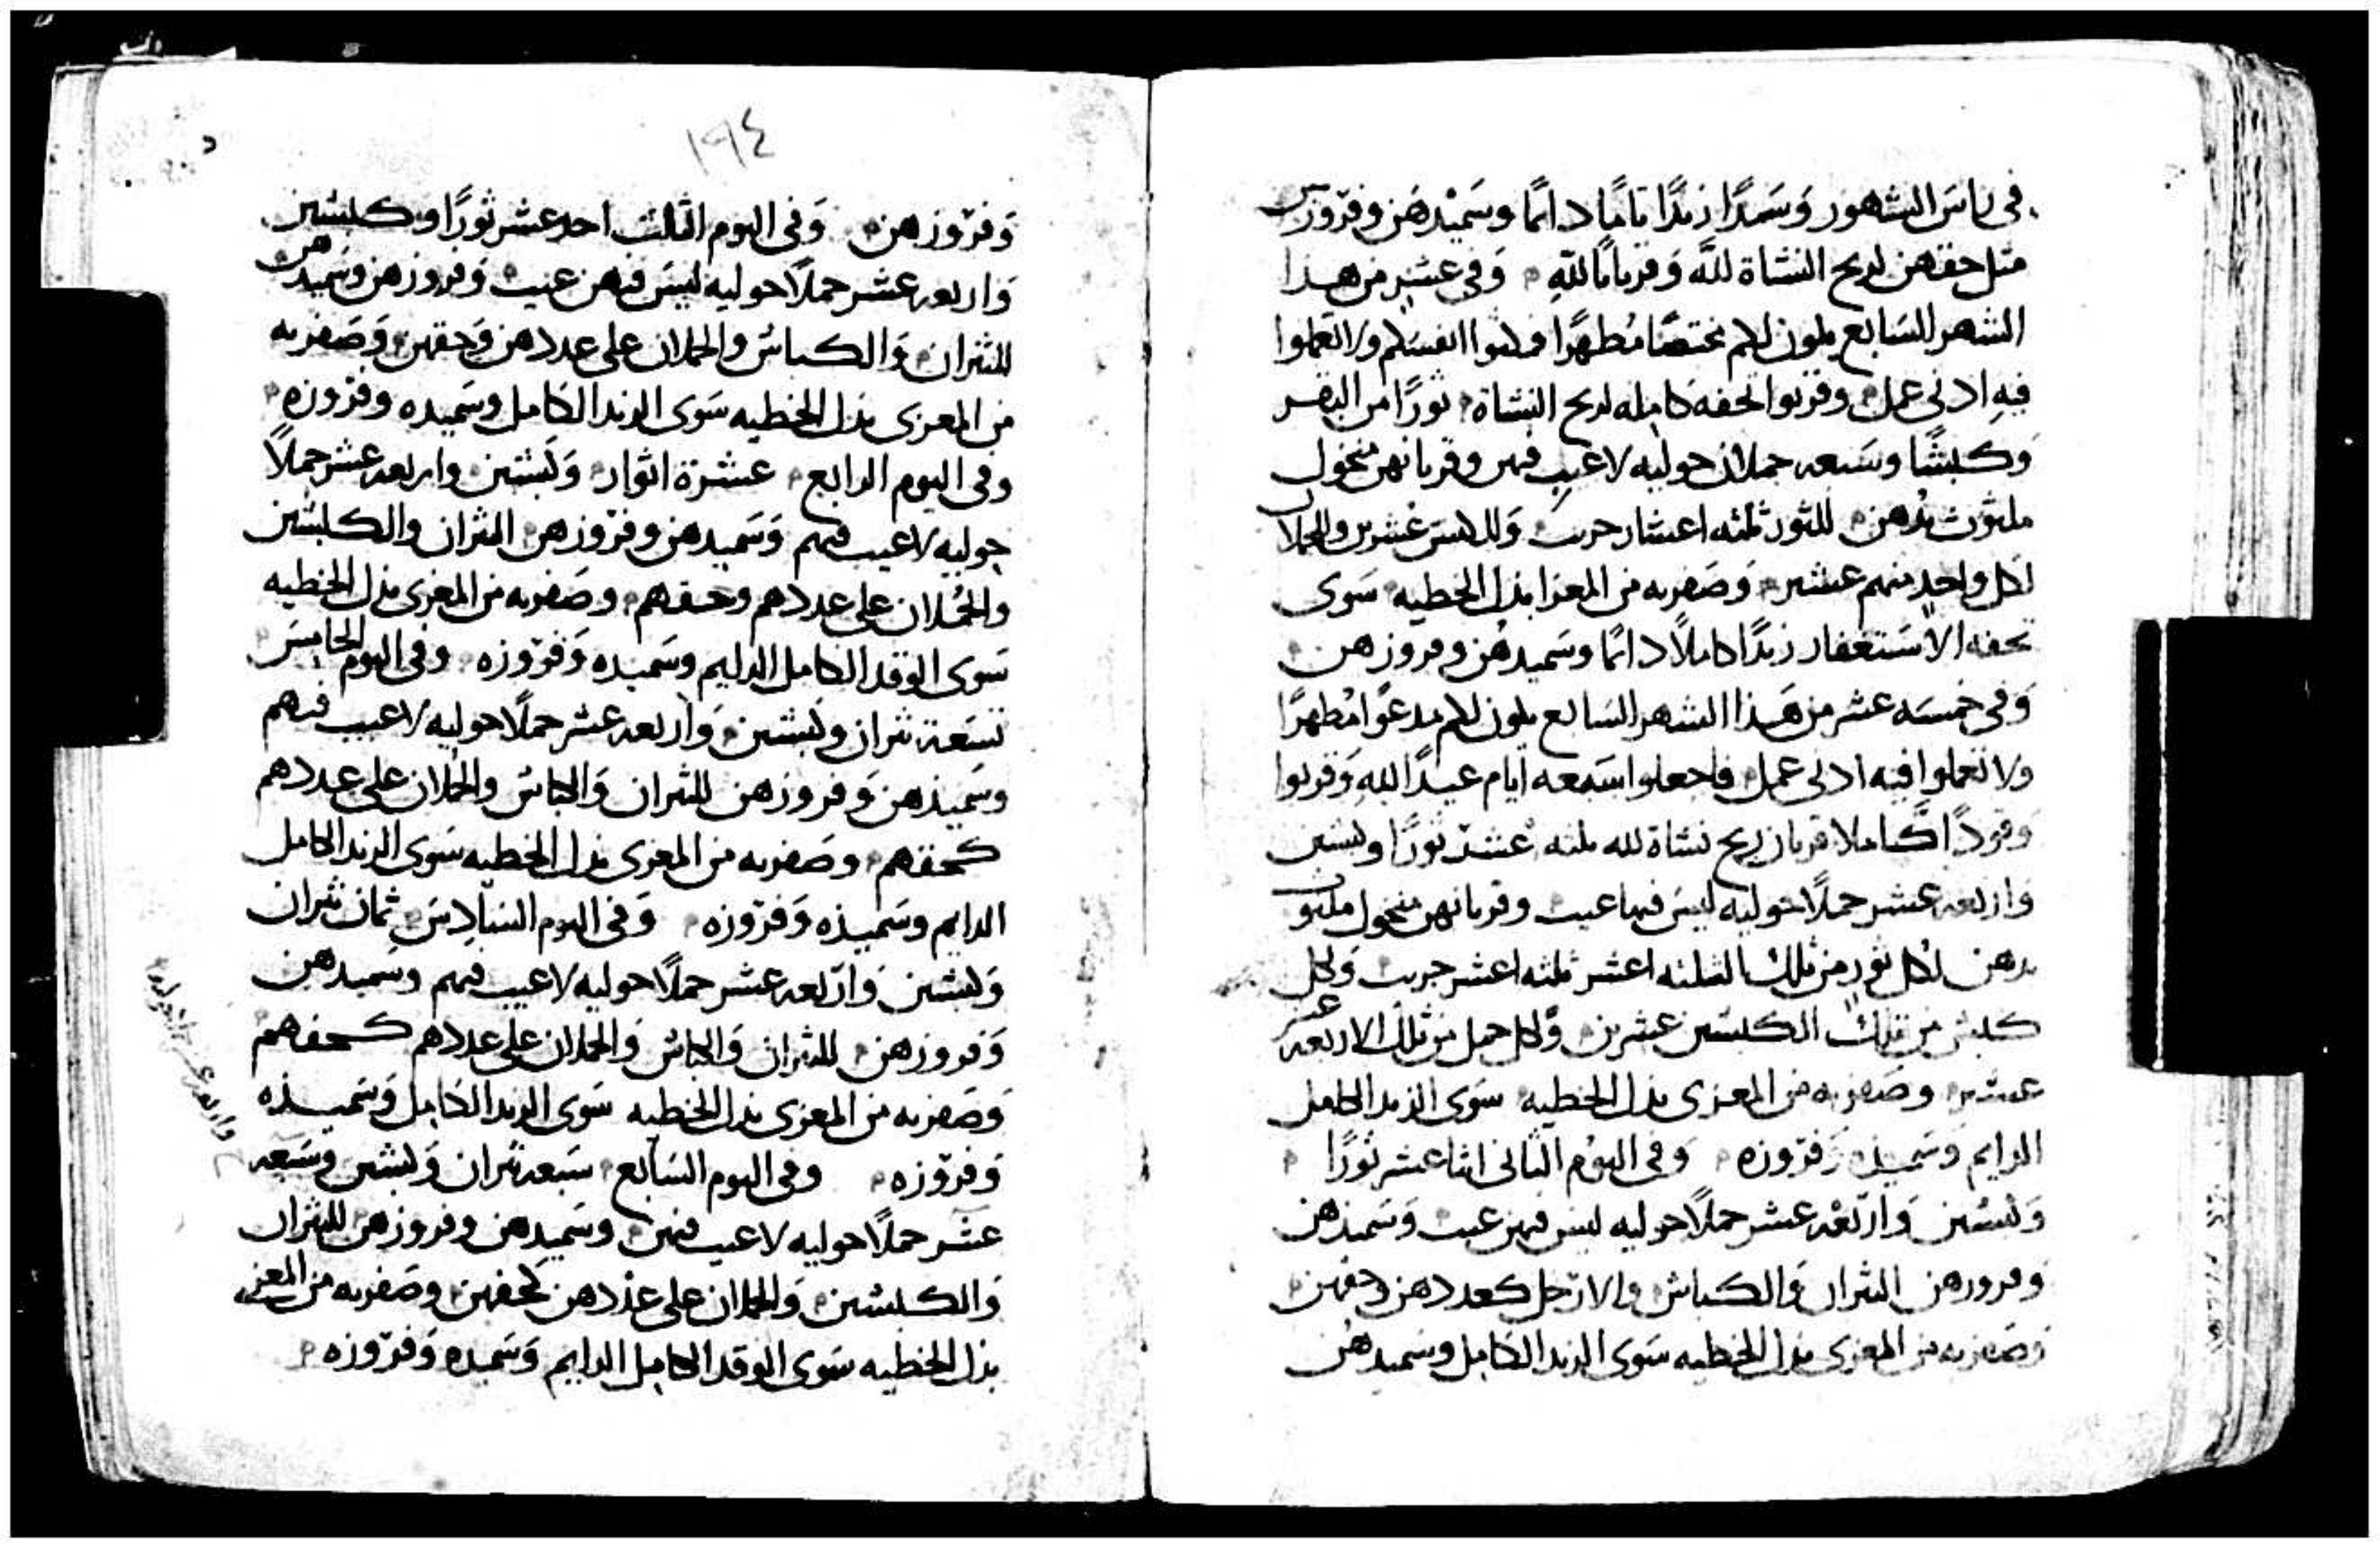 في راس الشهور وسمدًا زندًا تامًا دائمًا وسميدهن وفروزهن
مثل حقهن لريح النشاة لله وقربانًا لله وفي عشر من هذا
الشهر السابع يكون لكم مختصًا مطهرًا فدشوا انفسكم ولا تعملوا
فيه ادنى عمل وقربوا تحفه كامله لريح النشاة ثورًا من البقر
وكبشًا وسبعه حملان حوليه لا عيب فيهن وقربانهن منخول
ملثوث بدهن للثور ثلثه اعشار جريب وللكبش عشرين وللحملان
لكل واحد منهم عشر وصفريه من المعزا بذل الخطيه سوى
تحفه الاستغفار زندًا كاملًا دائمًا وسميدهن وفروزهن
وفي خمسه عشر من هذا الشهر السابع يكون لكم مدعوًا مطهرًا
ولا تعملوا فيه ادنى عمل فاجعلوا سبعه ايام عيدًا لله وقربوا
وقودًا كاملا قربان ريح نشاة لله ثلثه عشر ثورًا وكبشين
واربعه عشر حملًا حوليه ليس فيها عيب وقربانهن منخول ملثوث
بدهن لكل ثور من تلك الثلثه اعشر ثلثه اعشر جريب ولكل
كبش من تلك الكبشين عشرين ولكل حمل من تلك الاربعه عشر
عشر وصفريه من المعزى بذل الخطيه سوى الزند الكامل
الدايم وسميده وفروزه وفي اليوم الثاني اثنا عشر ثورًا
وكبشين واربعه عشر حملًا حوليه ليس فيهن عيب وسميدهن
وفروزهن الثيران والكباش والارخل كعددهن وحقهن
وصفريه من المعزى بذل الخطيه سوى الزند الكامل وسميدهن
١٩٤
وفروزهن وفي اليوم الثالث احد عشر ثورًا وكبشين
واربعه عشر حملًا حوليه ليس فيهن عيب وفروزهن وسميدهن
للثيران والكباش والحملان على عددهن وحقهن وصفريه
من المعزى بذل الخطيه سوى الزند الكامل وسميده وفروزه
وفي اليوم الرابع عشرة اثوار وكبشين واربعه عشر حملًا
حوليه لا عيب فيهم وسميدهن وفروزهن الثيران والكبشين
والحملان على عددهم وحقهم وصفريه من المعزى بذل الخطيه
سوى الوقد الكامل الدايم وسميده وفروزه وفي اليوم الخامس
تسعة ثيران وكبشين واربعه عشر حملًا حوليه لا عيب فيهم
وسميدهن وفروزهن للثيران والكباش والحملان على عددهم
كحقهم وصفريه من المعزى بذل الخطيه سوى الزند الكامل
الدايم وسميده وفروزه وفي اليوم السادس ثمان ثيران
وكبشين واربعه عشر حملًا حوليه لا عيب فيهم وسميدهن
وفروزهن للثيران والكباش والحملان على عددهم كحقهم
وصفريه من المعزى بذل الخطيه سوى الزند الكامل وسميده
وفروزه وفي اليوم السابع سبعه ثيران وكبشين وسبعه
عشر حملًا حوليه لا عيب فيهن وسميدهن وفروزهن للثيران
والكبشين والحملان على عددهن كحقهن وصفريه من المعزى
بذل الخطيه سوى الوقد الكامل الدايم وسميده وفروزه